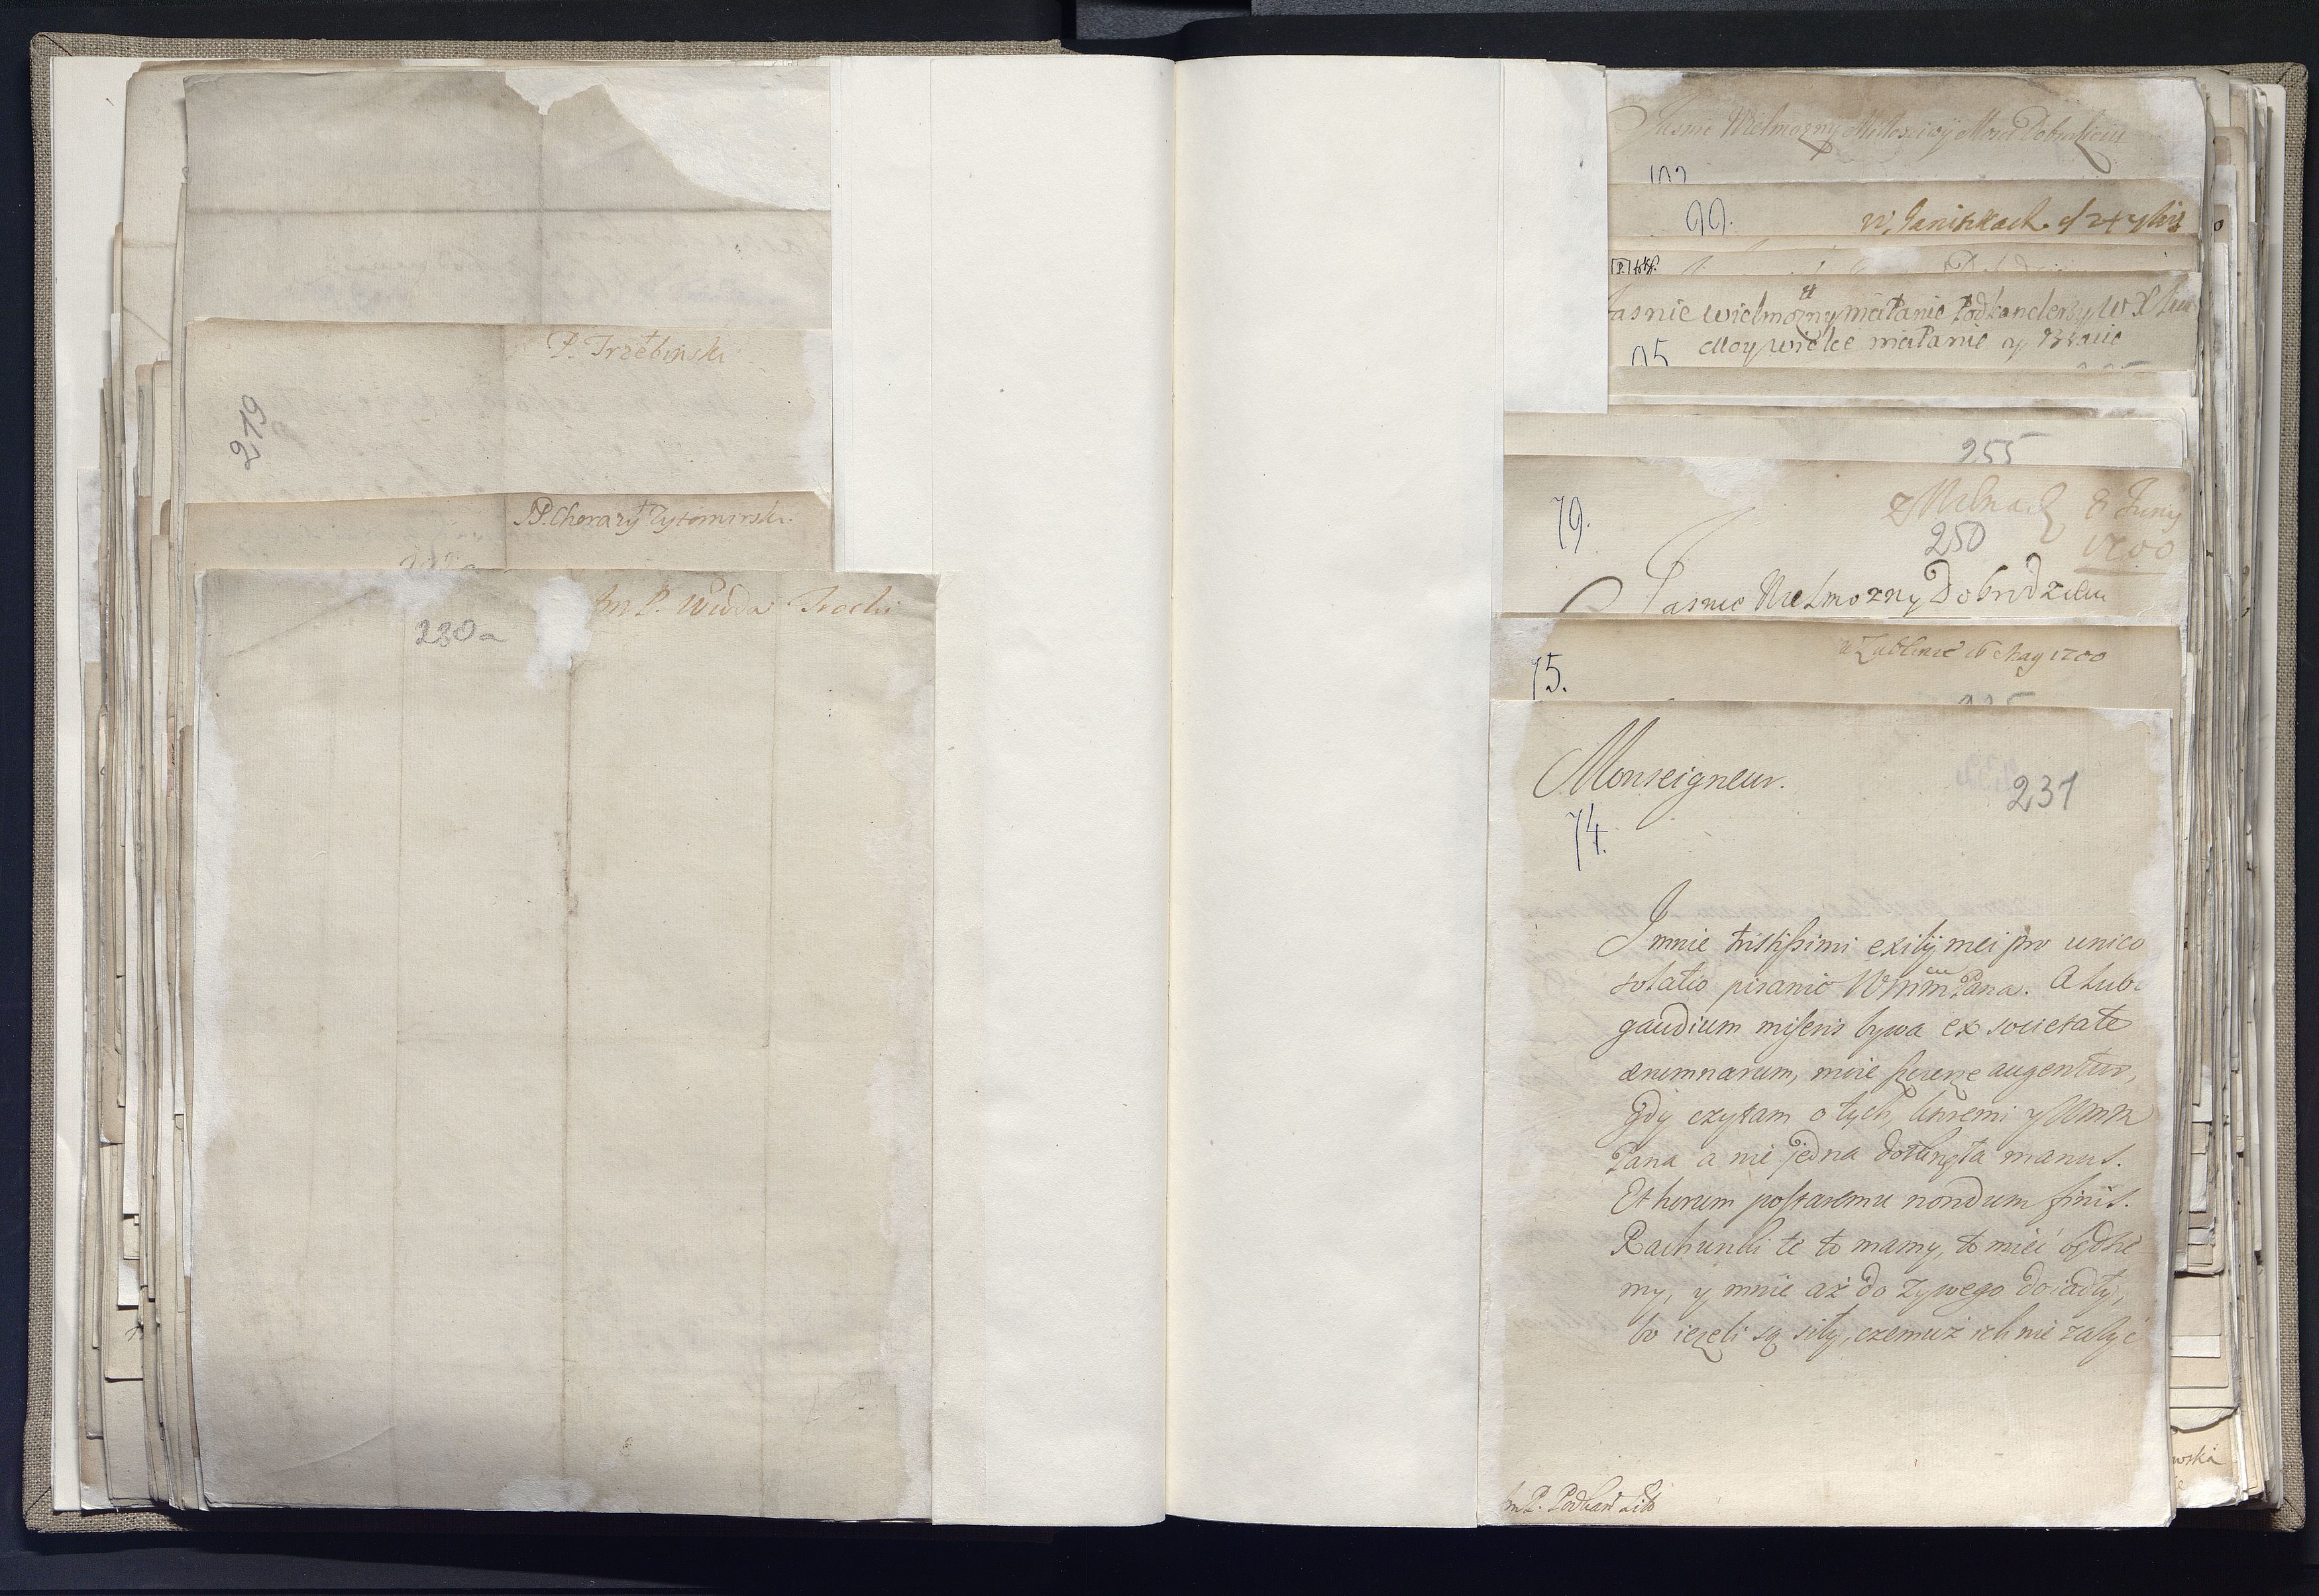 P. Trzebinski
219
P. Chorazy Zytomirski
Im P. Wwda Trocki
220a
Jasnie Wielmozny Miłosciwy Mosci Dobrodzieiu
99.
w Janiszkach d 24 
Jasnie wielmozny mci Panie Podkanclerzy W X
Moy wielce mci Panie y Bracie
95
255
79.
8 Juny
250
1700
Jasnie Wielmozny Dobrodzieiu
16 May 1700
75.
Monseigneur.
231
74.
I mnie tristissimi exilij mei pro unico
solatio pisanie WMM Pana. A lubo
gaudium miseris bywa ex societate
ærumnarum, mnie augentur,
gdy czytam o tych, ktoremi y WMM
Pana a nie jedna dotknęła manus.
Et horum postaremu nondum finis.
Rachunki te to mamy, to mieć będzie
my, y mnie aż do zywego doiadły,
bo ieżeli są siły, czemuż ich nie zażyć
Im P. Podkan Lit